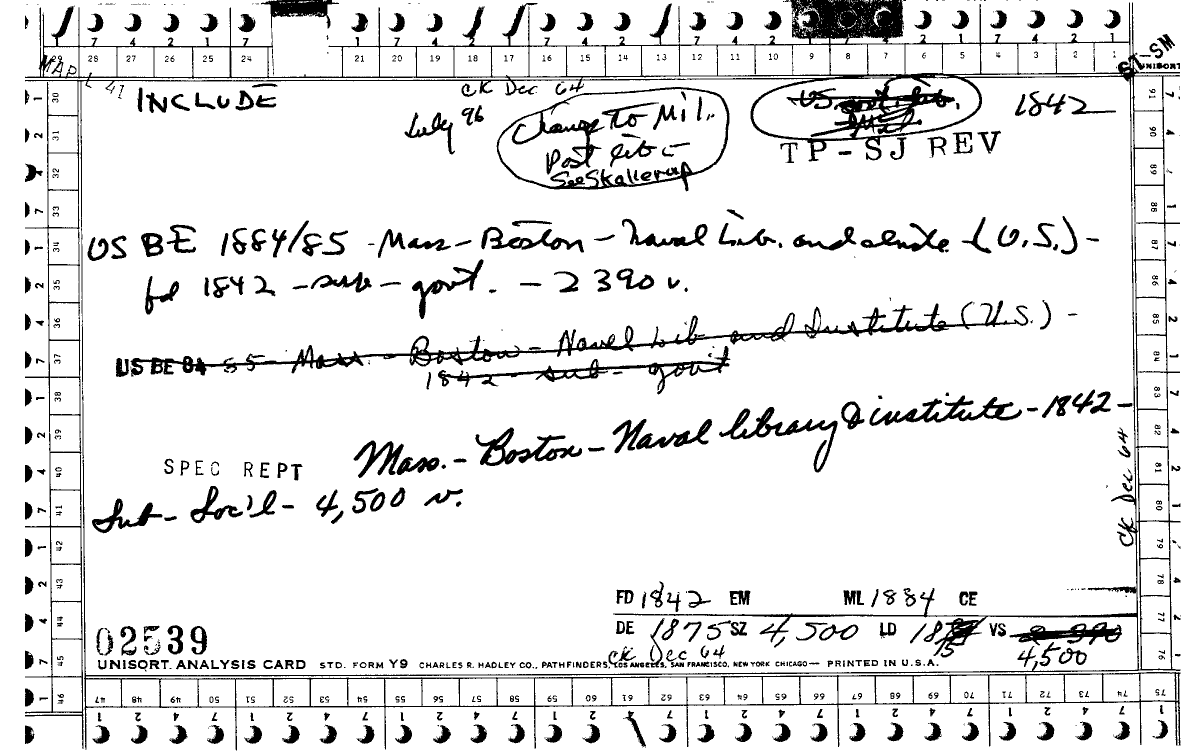 7 4 2 1 7 1 7 4 2 1 7 4 2 1 7 4 2 1 7 4 2 1
28 27 26 25 24 21 20 19 18 17 16 15 14 13 12 11 10 9 8 7 6 5 4 3 2 1
MAP L 41
ST-SM
UNISORT
INCLUDE
CK Dec 64
July 96
Change to Mil.
Post lib -
See Skallerup
US govt. lib.
Mil.
1842
TP-SJ REV
US BE 1884/85 - Mass - Boston - Naval Lib. and Institute - (U.S.) -
fd 1842 - sub - gov't. - 2390 v.
US BE 84 85 - Mass. - Boston - Naval Lib and Institute (U.S.) -
1842 - sub - gov't
Mass. - Boston - Naval library & institute - 1842 -
SPEC REPT
Sub - Soc'l - 4,500 v.
CK Dec 64
FD 1842 EM ML 1884 CE
DE 1875 SZ 4,500 LD 18 75 VS 2 390
4,500
CK Dec 64
02539
UNISORT ANALYSIS CARD STD. FORM Y9 CHARLES R. HADLEY CO., PATHFINDERS, LOS ANGELES, SAN FRANCISCO, NEW YORK CHICAGO — PRINTED IN U.S.A.
30 31 32 33 34 35 36 37 38 39 40 41 42 43 44 45 46
91 90 89 88 87 86 85 84 83 82 81 80 79 78 77 76
47 48 49 50 51 52 53 54 55 56 57 58 59 60 61 62 63 64 65 66 67 68 69 70 71 72 73 74 75